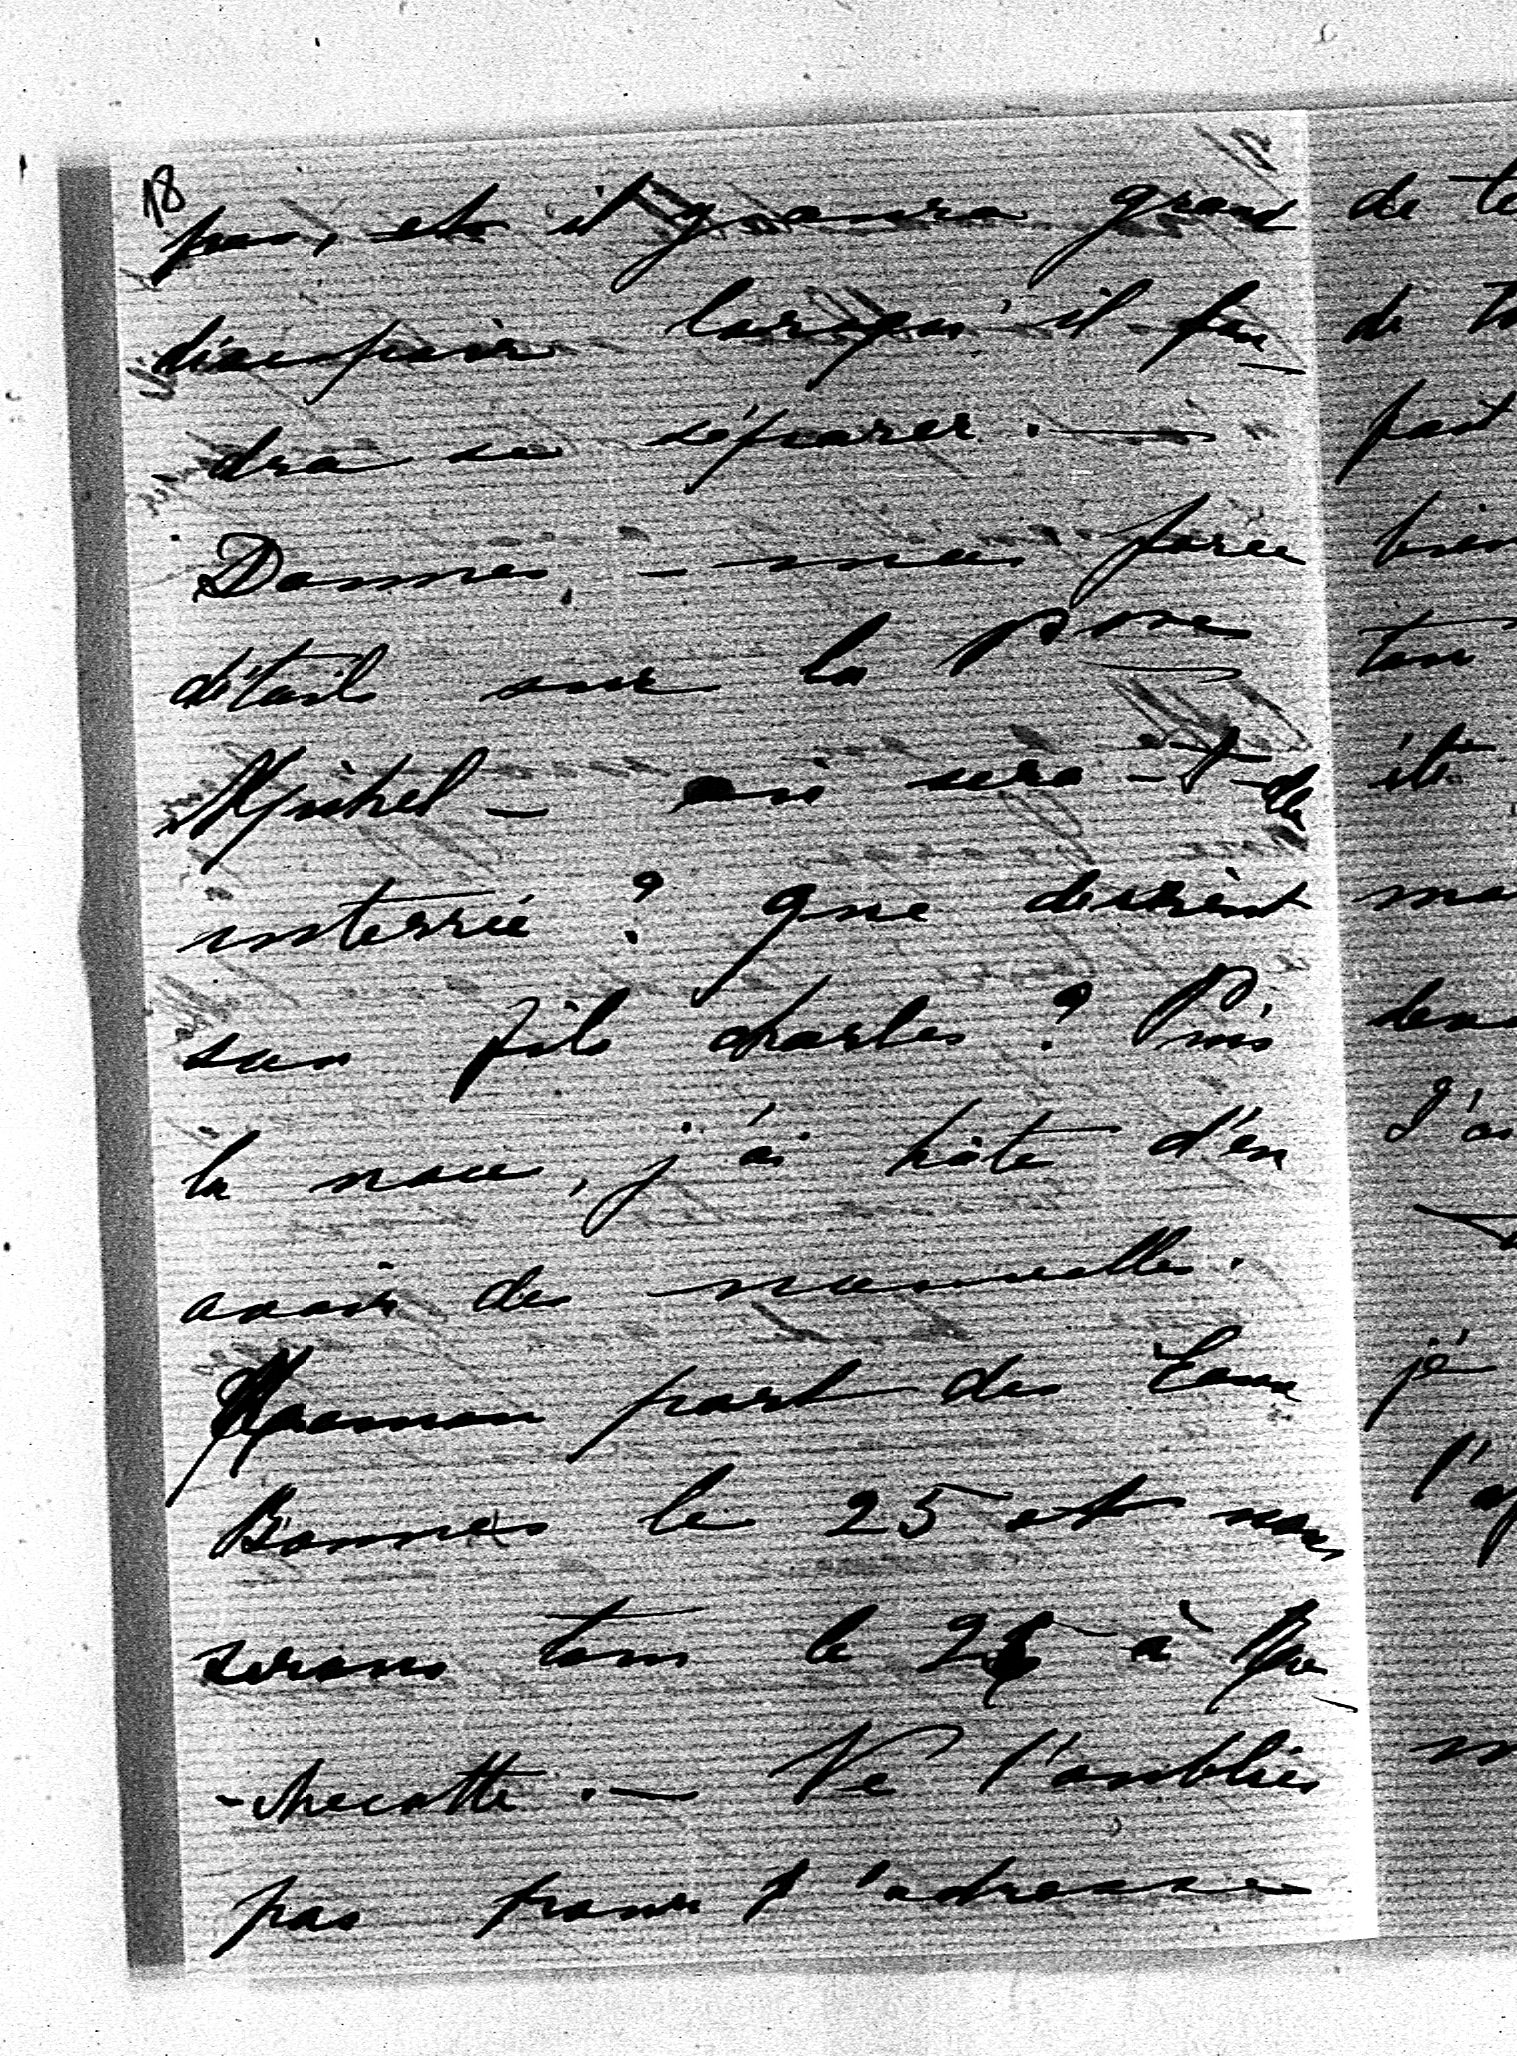 18
pas, et il y aura grand
désespoir lorsqu'il fau
dra se séparer. —
Donnes - moi force
détail sur la Pce
Michel — où sera-t-elle
enterrée ? que devient
son fils Charles ? Puis
la noce, j'ai hâte d'en
avoir des nouvelles.
Maman part des Eaux
Bonnes le 25 et nous
serons tous le 26 à
-checotte. — Ne l'oublies
pas pour l'adresse
de
de
fait
bien
ton
été
J'ai
je